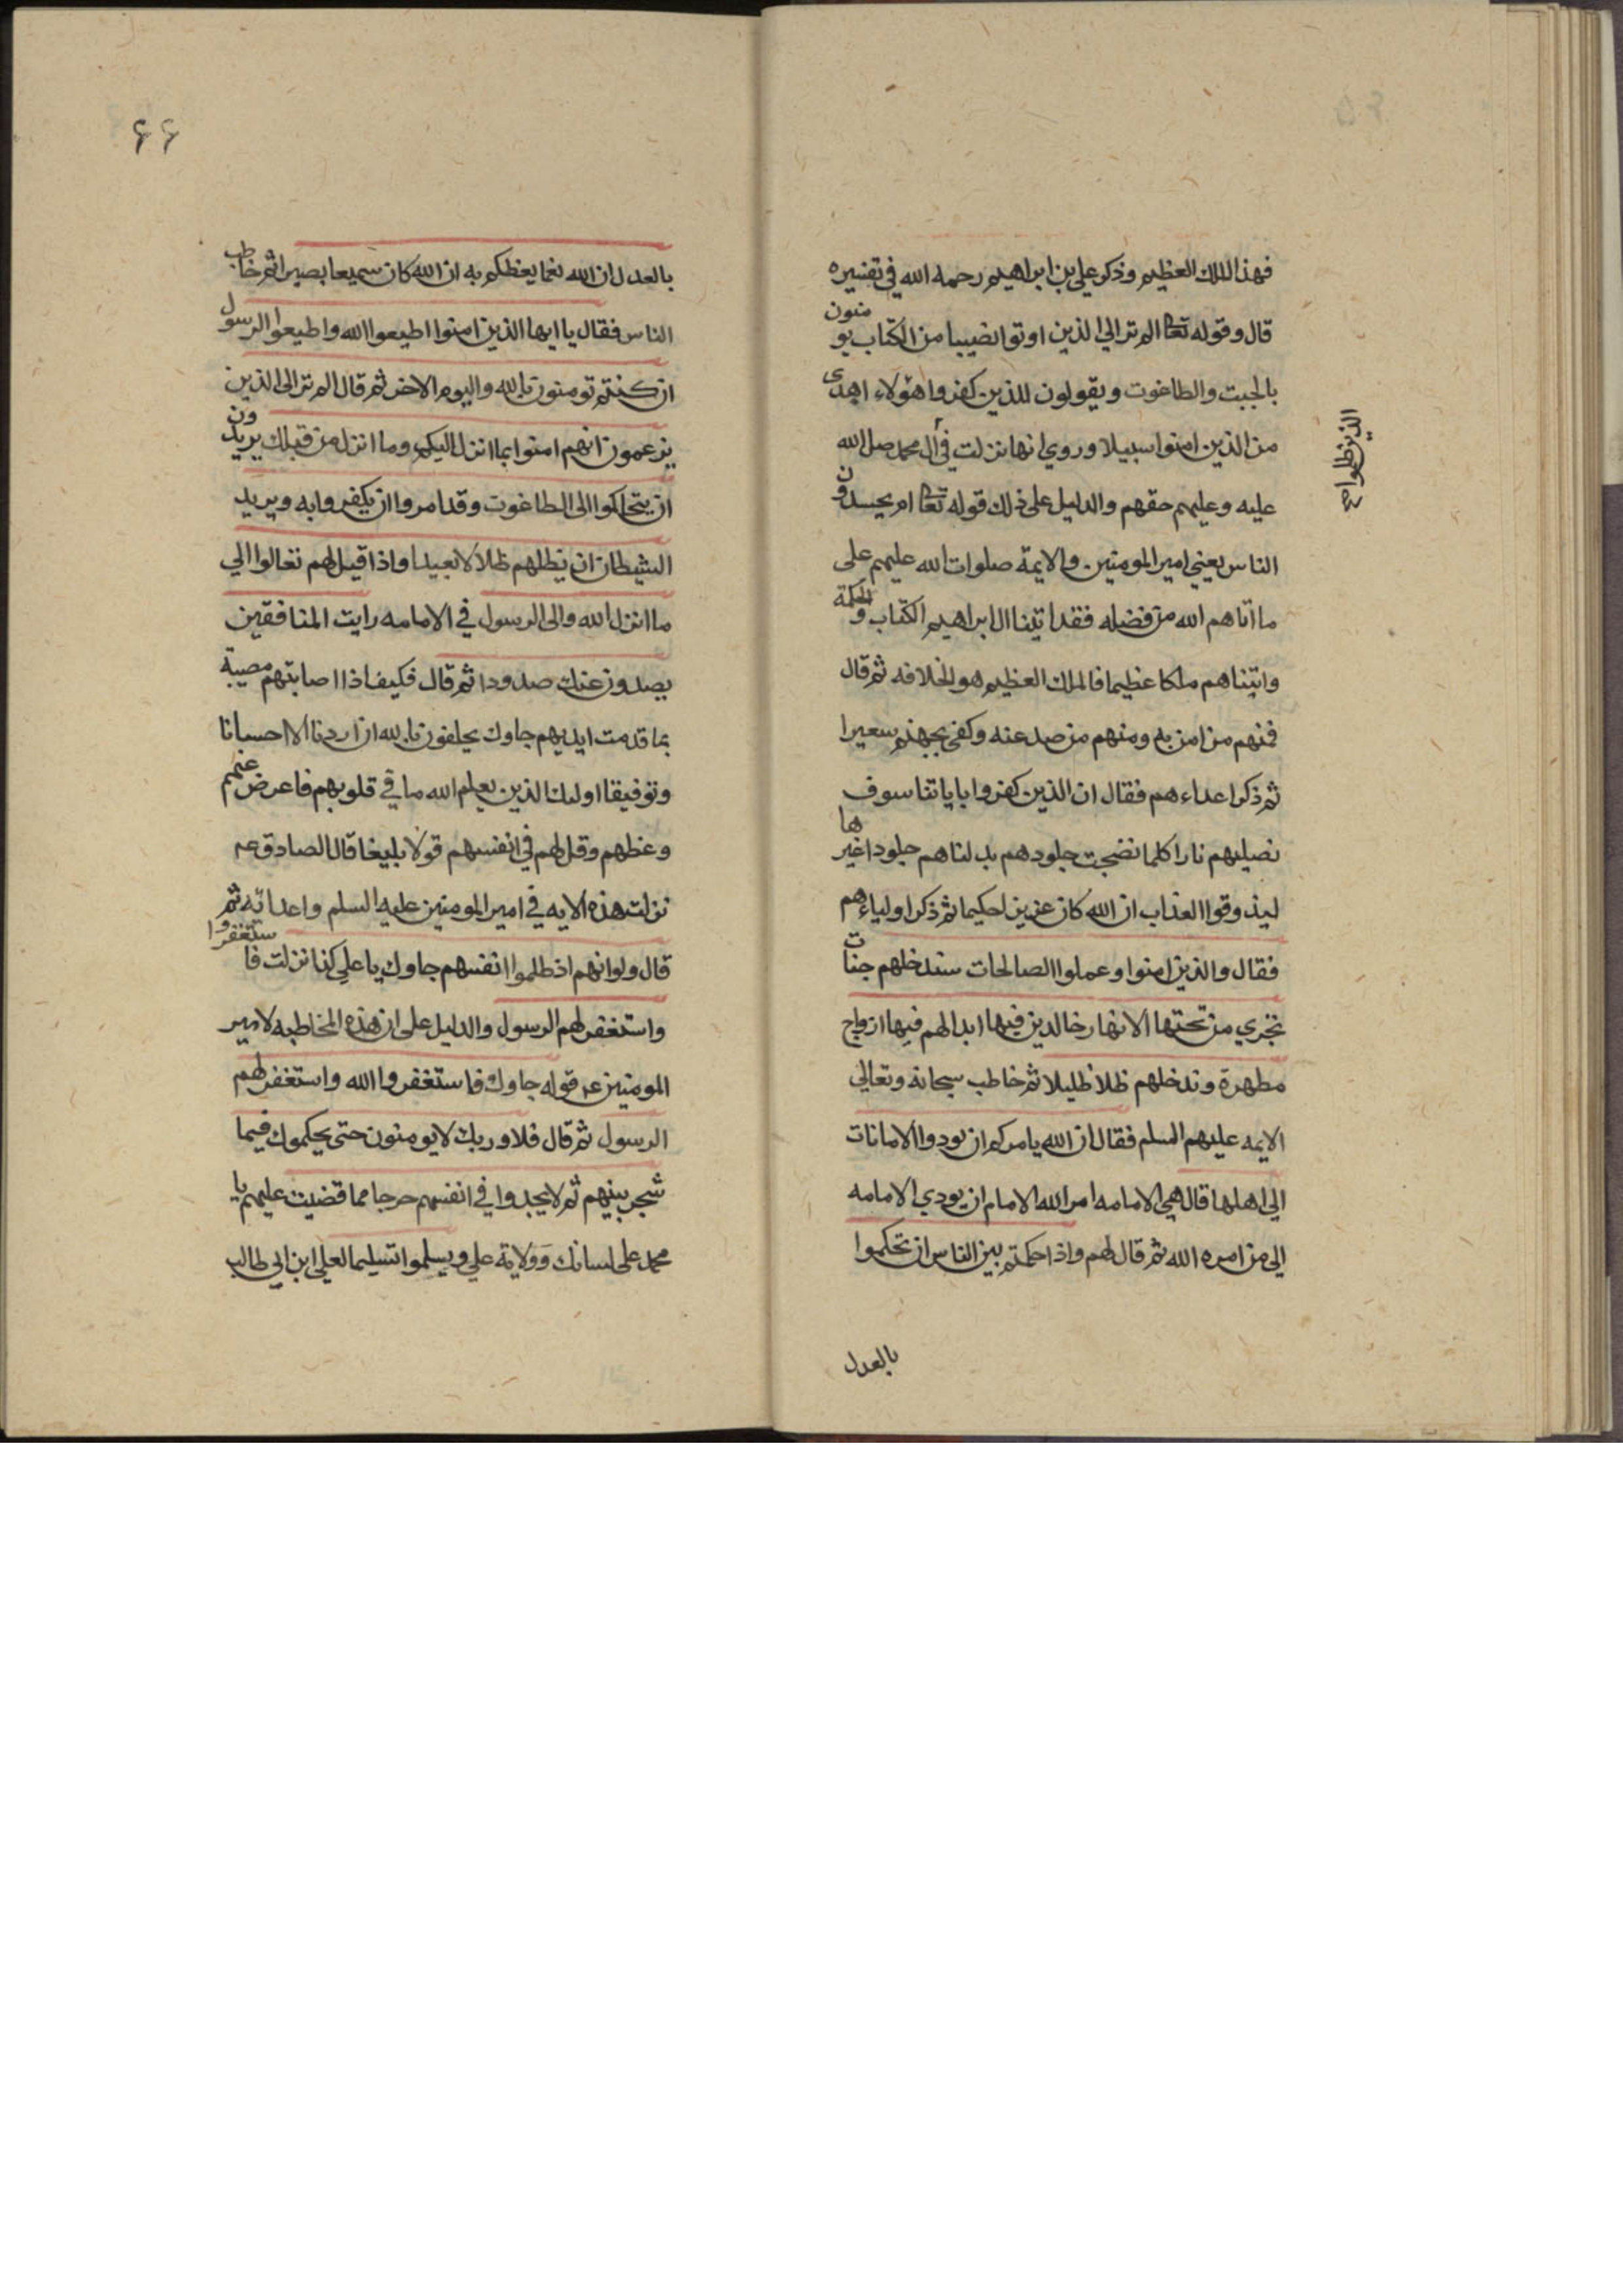 فهذا الملك العظيم وذكر علي بن ابراهيم رحمه الله في تفسيره
قال وقوله تعا الم تر الي الذين اوتوا نصيبا من الكتاب يومنون
بالجبت والطاغوت ويقولون للذين كفروا هؤلاء اهدى
من الذين امنوا سبيلا وروي انها نزلت في آل محمد صلى الله
الذين ظلموا
عليه وعليهم حقهم والدليل على ذلك قوله تعا ام يحسدون
الناس يعني امير المومنين والايمة صلوات الله عليهم على
ما اتاهم الله من فضله فقد اتينا ال ابراهيم الكتاب والحكمة
واتيناهم ملكا عظيما فالملك العظيم هو الخلافه ثم قال
فمنهم من امن به ومنهم من صد عنه وكفى بجهنم سعيرا
ثم ذكر اعداءهم فقال ان الذين كفروا باياتنا سوف
نصليهم نارا كلما نضجت جلودهم بدلناهم جلودا غيرها
ليذوقوا العذاب ان الله كان عزيزا حكيما ثم ذكر اولياءهم
فقال والذين امنوا وعملوا الصالحات سندخلهم جنات
تجري من تحتها الانهار خالدين فيها ابدا لهم فيها ازواج
مطهرة وندخلهم ظلا ظليلا ثم خاطب سبحانه وتعالي
الايمه عليهم السلم فقال ان الله يامركم ان تودوا الامانات
الي اهلها قال هي الامامه امر الله الامام ان يودي الامامه
الي من امره الله ثم قال لهم واذا حكمتم بين الناس ان تحكموا
بالعدل
۶۶
بالعدل ان الله نعما يعظكم به ان الله كان سميعا بصيرا ثم خاطب
الناس فقال يا ايها الذين امنوا اطيعوا الله واطيعوا الرسول
ان كنتم تومنون بالله واليوم الاخر ثم قال الم تر الى الذين
يزعمون انهم امنوا بما انزل اليكم وما انزل من قبلك يريدون
ان يتحاكموا الى الطاغوت وقد امروا ان يكفروا به ويريد
الشيطان ان يظلهم ظلالا بعيدا واذا قيل لهم تعالوا الي
ما انزل الله والى الرسول في الامامه رايت المنافقين
يصدون عنك صدودا ثم قال فكيف اذا اصابتهم مصيبة
بما قدمت ايديهم جاوك يحلفون بالله ان اردنا الا احسانا
وتوفيقا اولىك الذين يعلم الله ما في قلوبهم فاعرض عنهم
وعظهم وقل لهم في انفسهم قولا بليغا قال الصادق عه
نزلت هذه الايه في امير المومنين عليه السلم واعدائه ثم
قال ولو انهم اذ ظلموا انفسهم جاوك يا علي كذا نزلت فاستغفروا
واستغفر لهم الرسول والدليل على ان هذه المخاطبه لامير
المومنين عه قوله جاوك فاستغفروا الله واستغفر لهم
الرسول ثم قال فلا وربك لا يومنون حتى يحكموك فيما
شجر بينهم ثم لا يجدوا في انفسهم حرجا مما قضيت عليهم يا
محمد على لسانك وولاية علي ويسلموا تسليما لعلي ابن ابي طالب